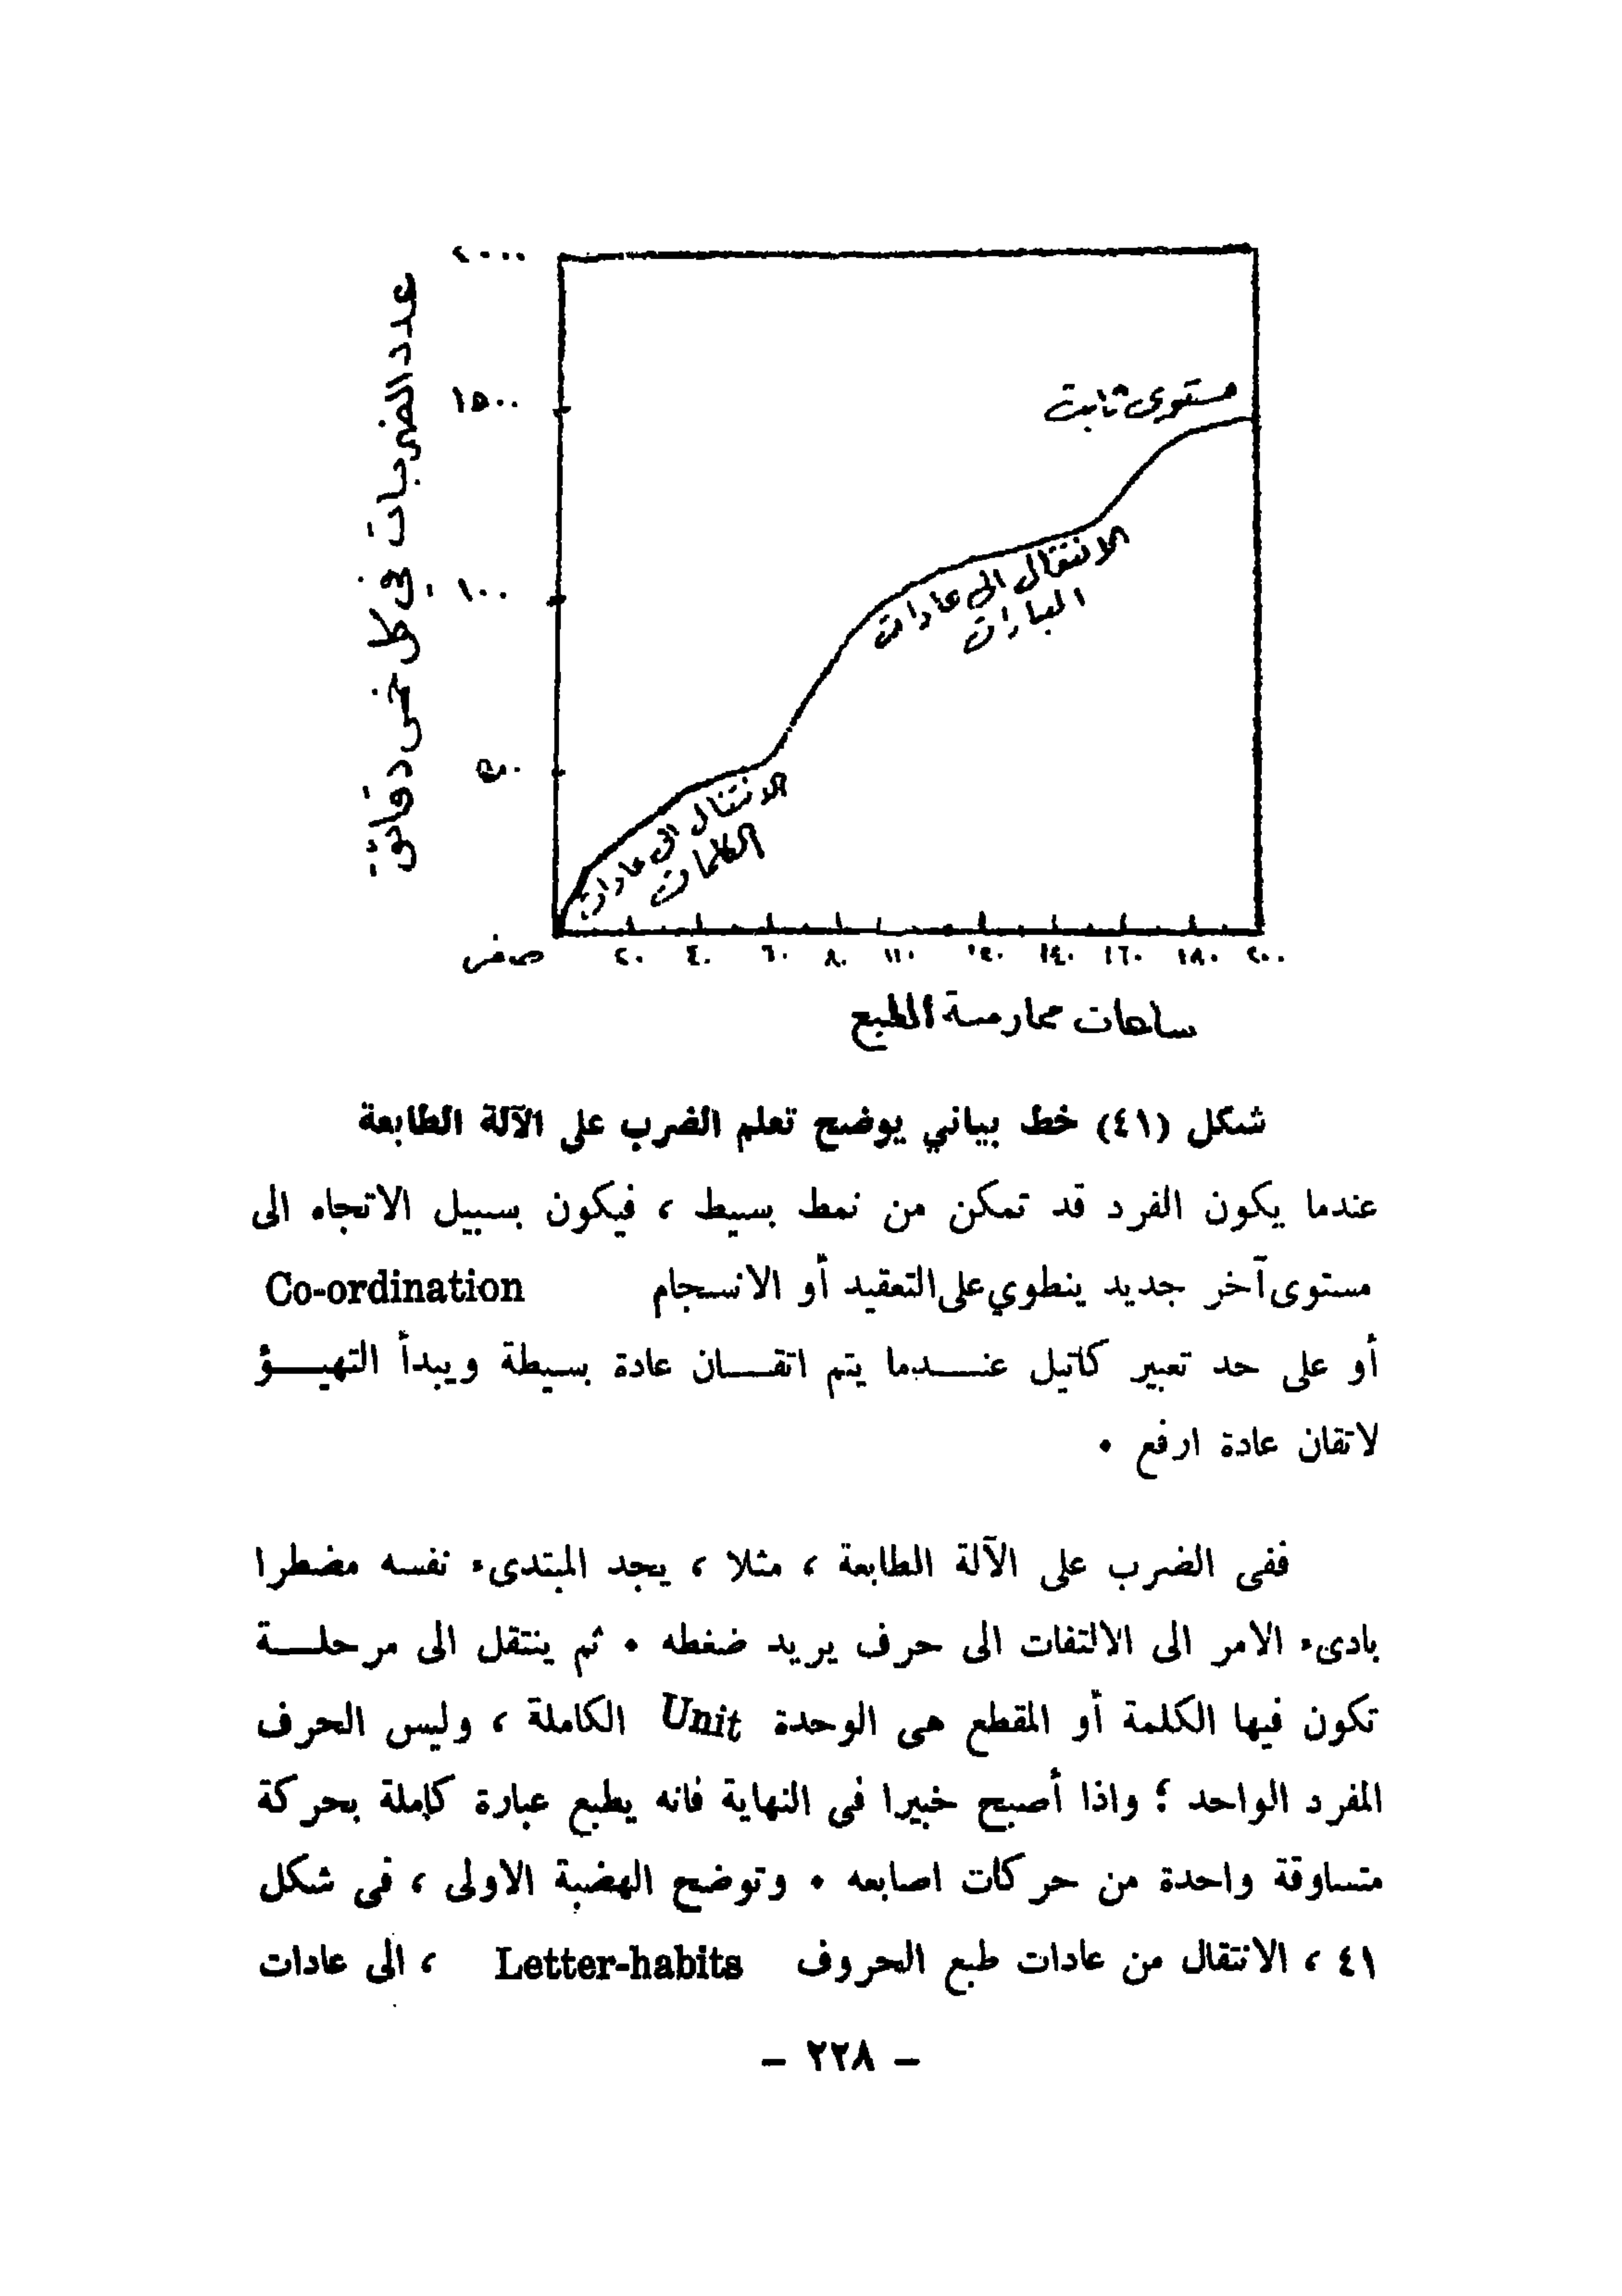 ٢٠٠٠
١٥٠٠
١٠٠٠
٥٠٠
عدد الضربات في كل خمس دقائق
مستوى ثابت
الانتقال الى عادات
العبارات
الانتقال الى عادات
الكلمات
صفر ٢٠ ٤٠ ٦٠ ٨٠ ١٠٠ ١٢٠ ١٤٠ ١٦٠ ١٨٠ ٢٠٠
ساعات ممارسة الطبع
شكل (٤١) خط بياني يوضح تعلم الضرب على الآلة الطابعة
عندما يكون الفرد قد تمكن من نمط بسيط ، فيكون بسبيل الاتجاه الى
مستوى آخر جديد ينطوي على التعقيد أو الانسجام Co-ordination
أو على حد تعبير كاتيل عنـــدما يتم اتقـــان عادة بسيطة ويبدأ التهيـــؤ
لاتقان عادة ارفع •
ففى الضرب على الآلة الطابعة ، مثلا ، يجد المبتدىء نفسه مضطرا
بادىء الامر الى الالتفات الى حرف يريد ضغطه • ثم ينتقل الى مرحلـــة
تكون فيها الكلمة أو المقطع هى الوحدة Unit الكاملة ، وليس الحرف
المفرد الواحد ؛ واذا أصبح خبيرا فى النهاية فانه يطبع عبارة كاملة بحركة
متساوقة واحدة من حركات اصابعه • وتوضح الهضبة الاولى ، فى شكل
٤١ ، الانتقال من عادات طبع الحروف Letter-habits ، الى عادات
– ٢٢٨ –